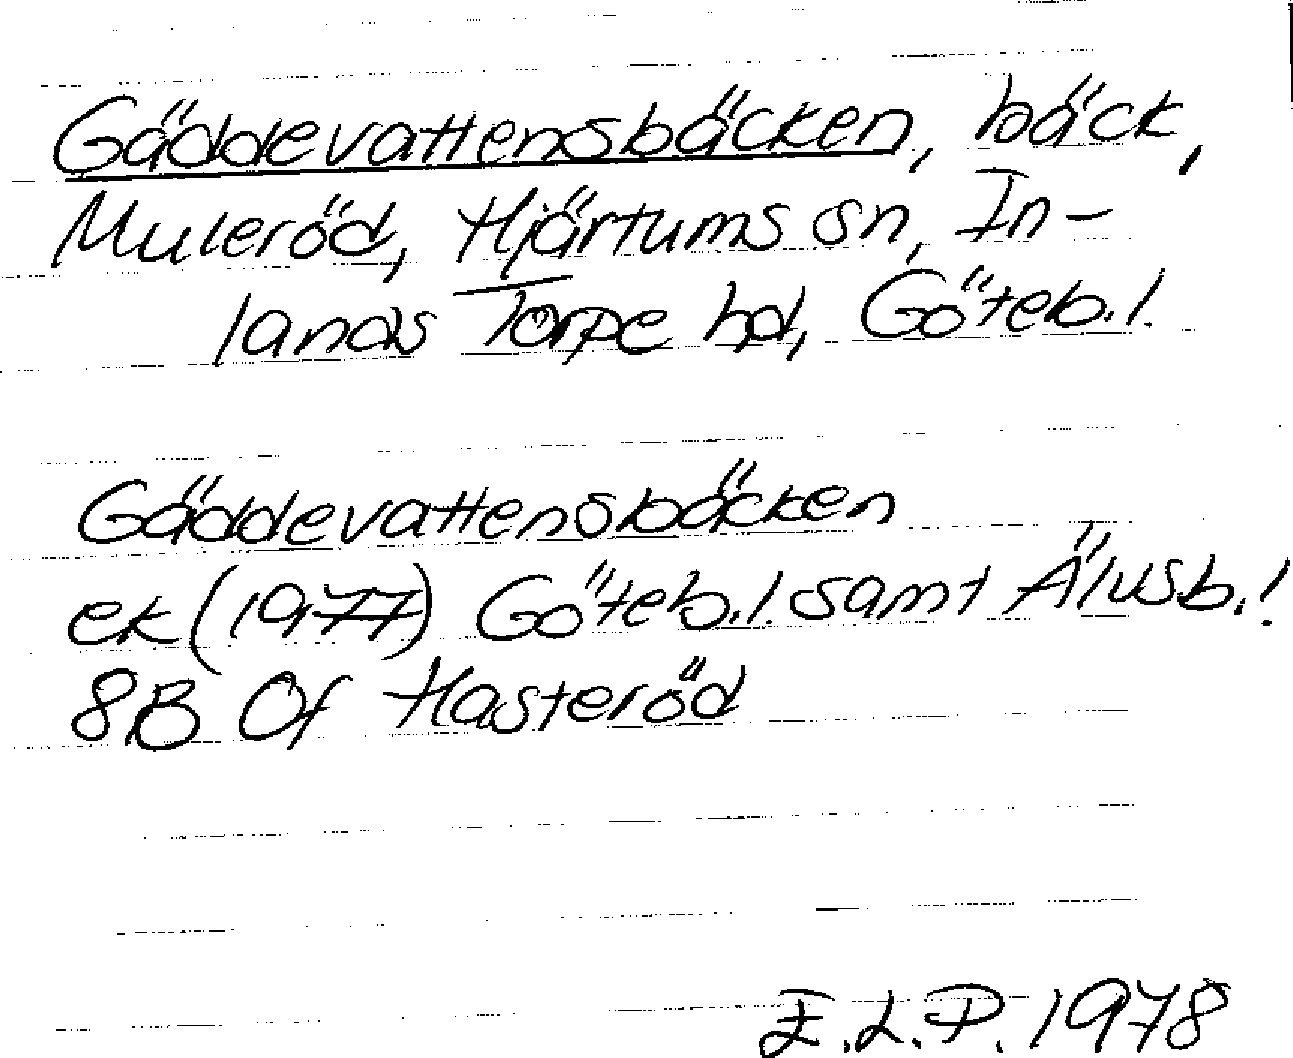 Gäddevattensbäcken, bäck,
Muleröd, Hjärtums sn, In-
lands Torpe hd, Göteb. l.
Gäddevattensbäcken
ek (1977) Göteb. l. samt Älvsb. l.
8B 0f Hasteröd
E.L.P. 1978